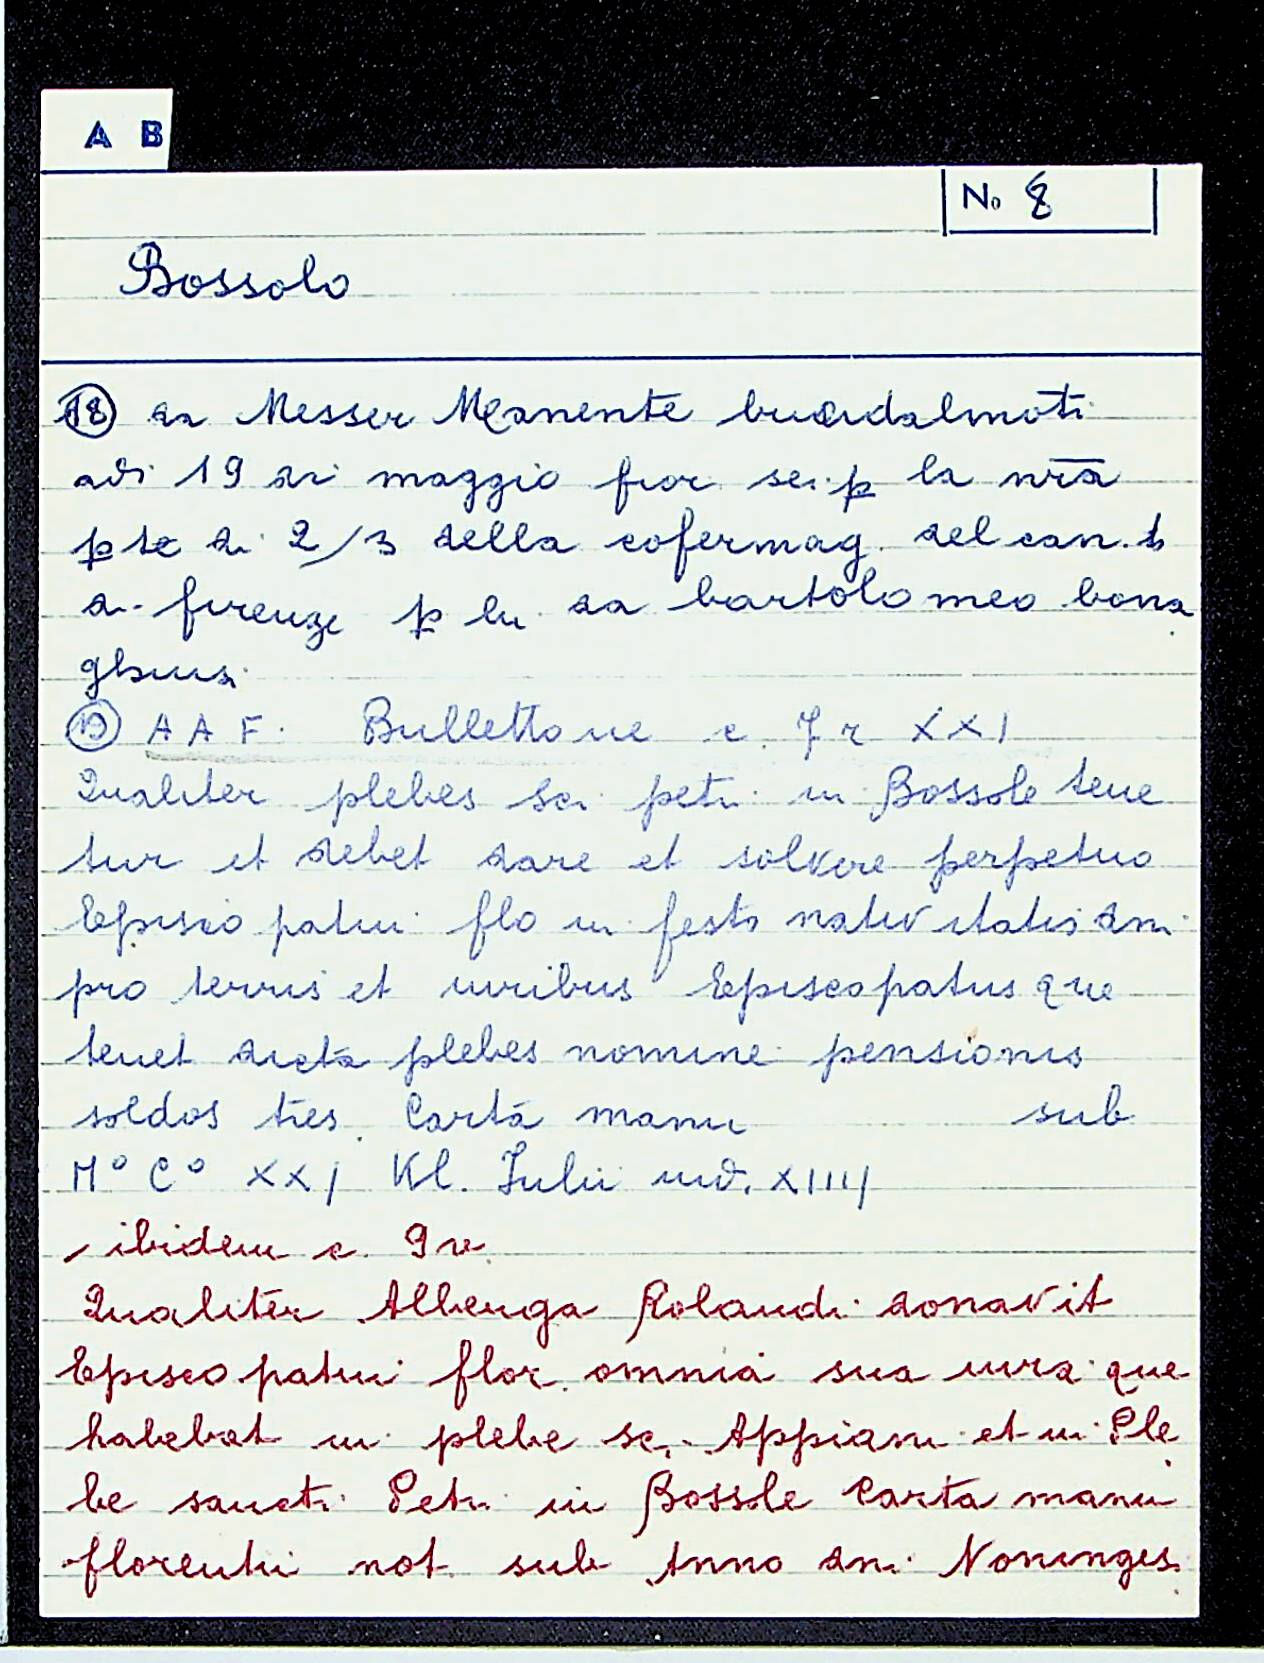 A B
No 8
Bossolo
18 da Messer Manente buondalmōti
adi 19 di maggio fior. sei p la nr̄a
pte di 2/3 della cofermag. del can.to
di firenze p lu da bartolomeo bona
ghuisi
19 A A F. Bullettone c. 7 r XXI
Qualiter plebes Sci petri in Bossole tene
tur et debet dare et solvere perpetuo
Episcopatui flo in festo nativitatis dni
pro terris et iuribus Episcopatus que
tenet dicta plebes nomine pensionis
soldos tres. Carta manu sub
M° C° XXI Kl. Iulii ind. XIIII
ibidem c. 9 v
Qualiter Albenga Rolandi donavit
Episcopatui flor. omnia sua iura que
habebat in plebe Sci Appiani et in Ple
be sancti Petri in Bossole Carta manu
florentii not sub Anno dni Noninges